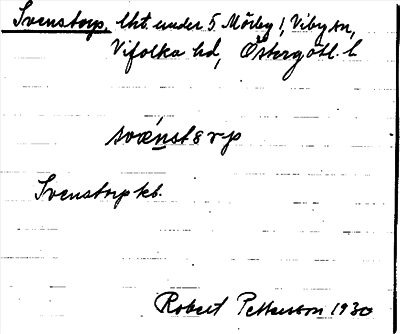 Svenstorp, lht. under 5 Mörby 1, Viby sn,
Vifolka hd, Östergötl. l
svænst8rp
Svenstorp kb.
Robert Petterson 1930